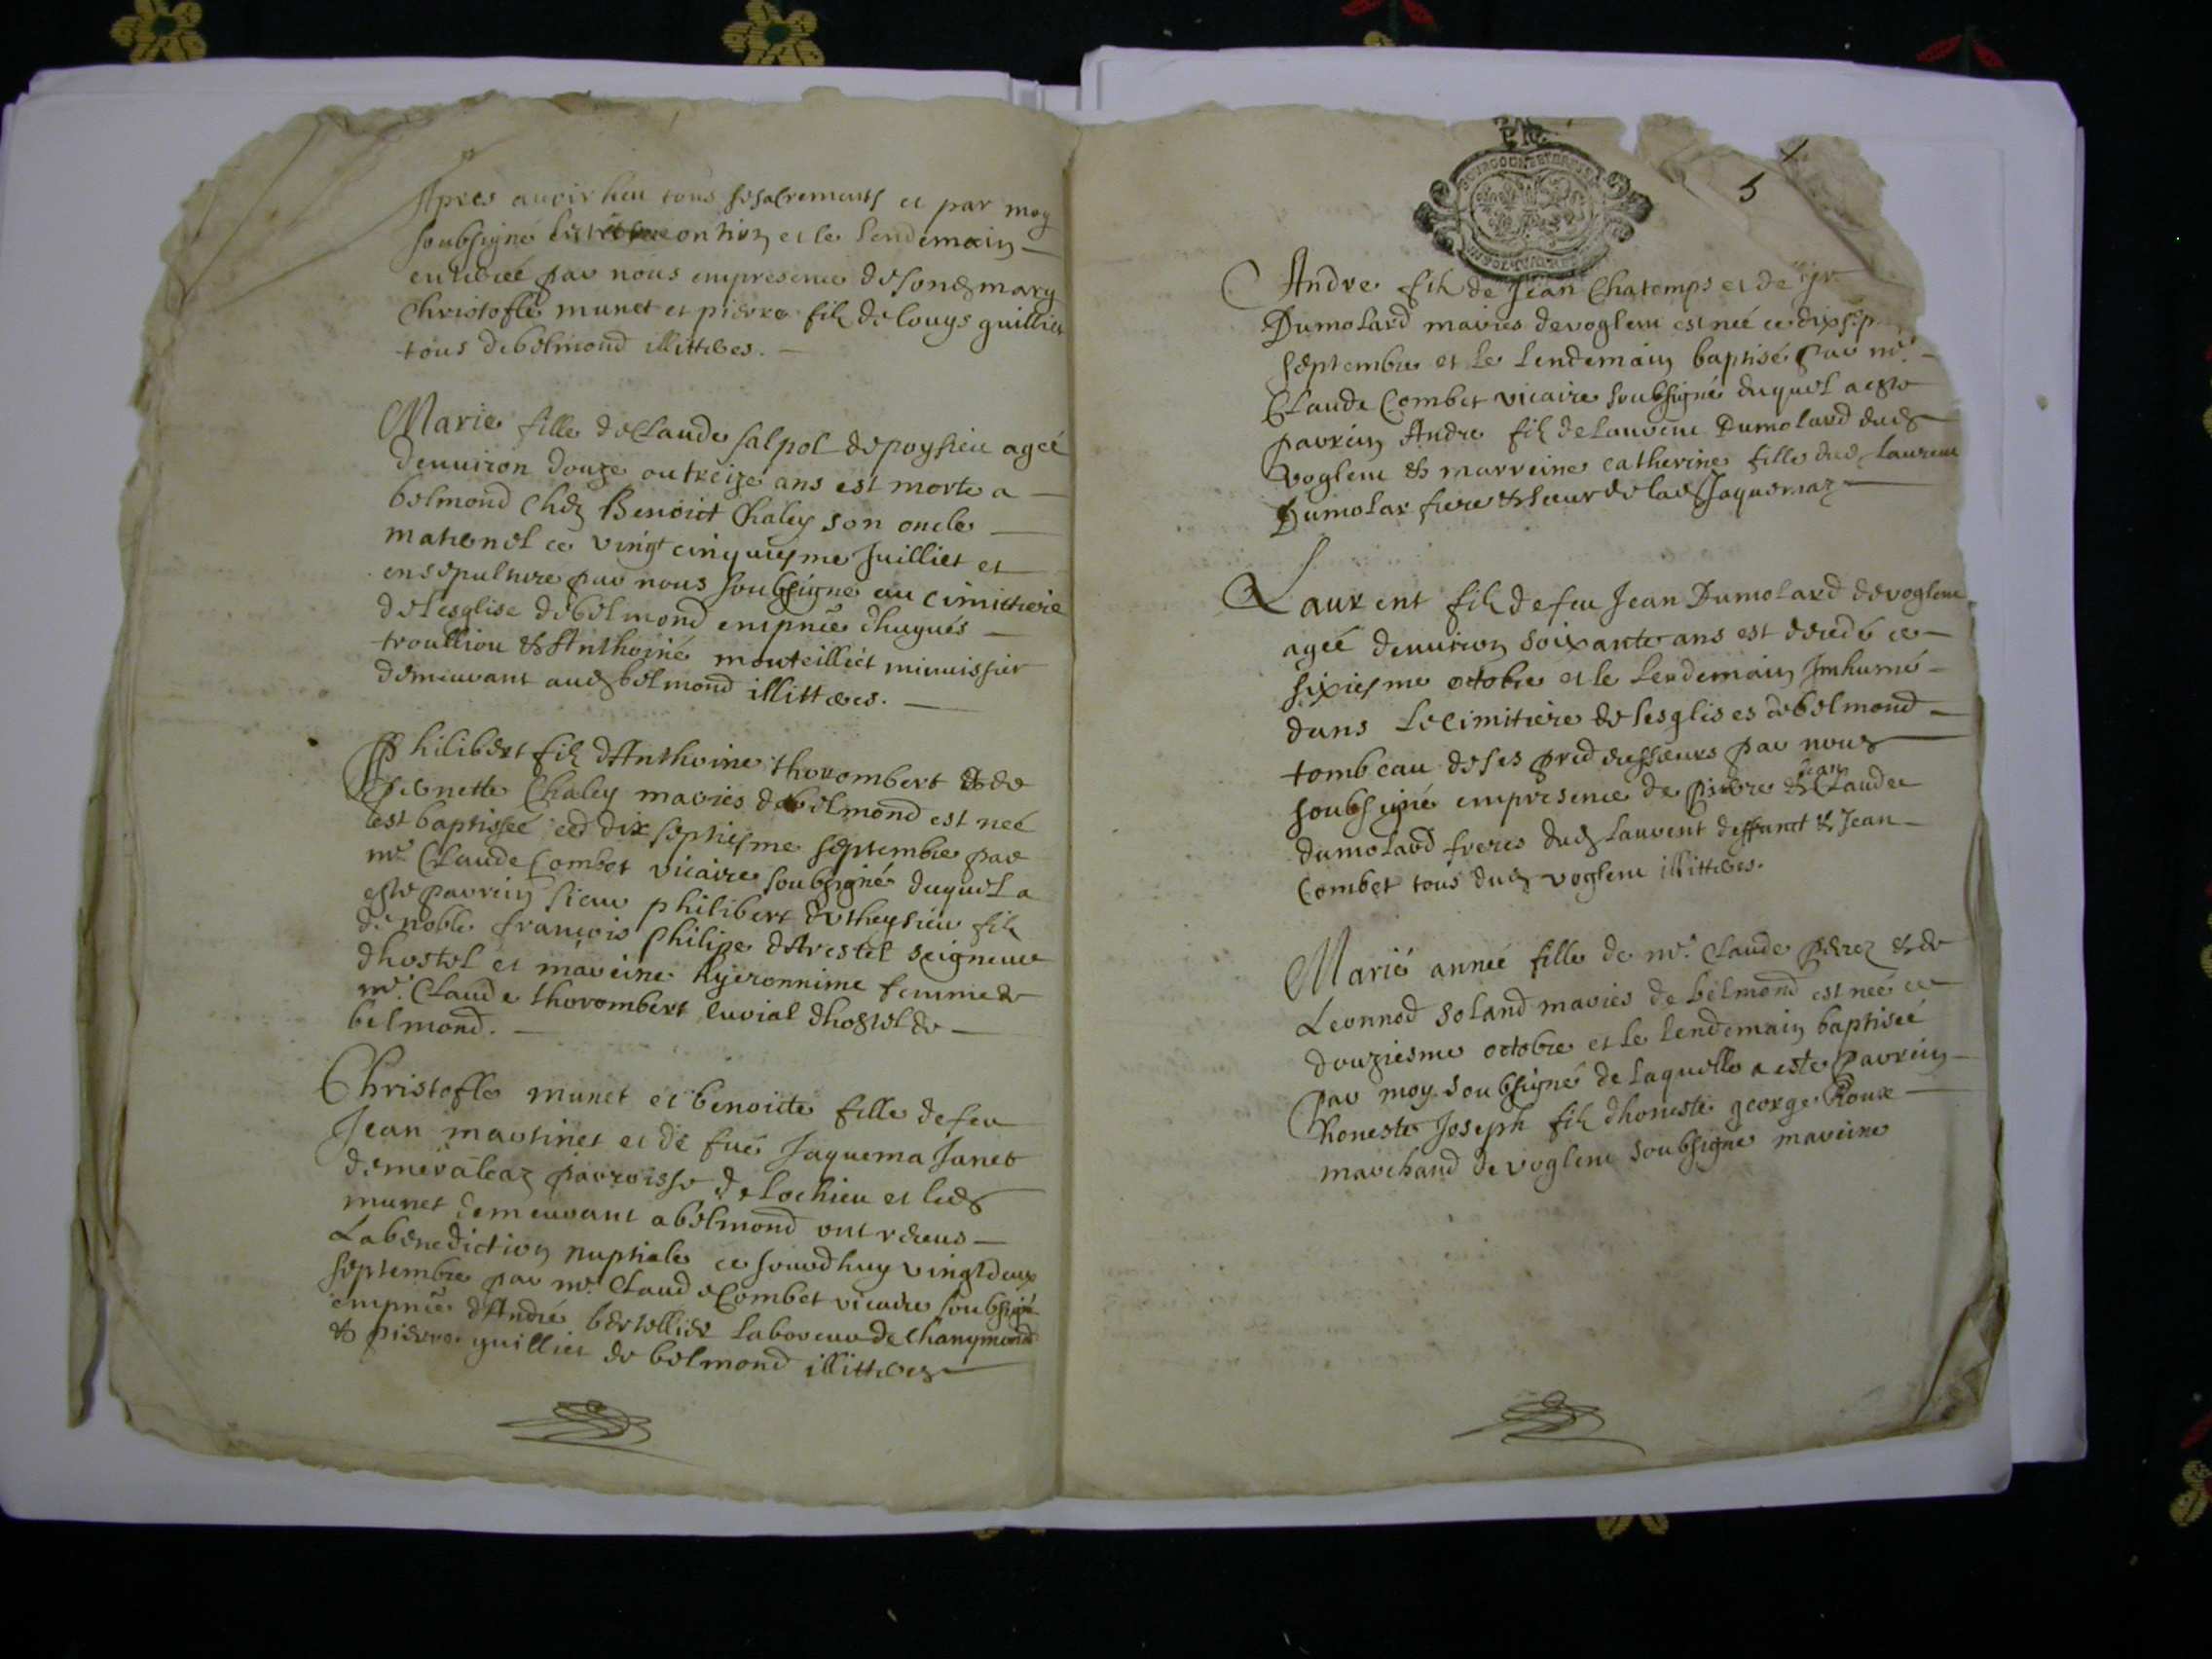 Apres avoir heu tous se sacrements et par moy
soubsigné ontion et le lendemain
enterreé par nous en presence de sond mary
Christofle munet et pierre filz de louys guilliet
tous de belmond illitteres.
Marie fille de Claude salpol de poysieu ageé
denuiron douze ou treize ans est morte a
belmond Chéz Benoict Chaley son oncle
maternel ce vingt cinquiesme Juilliet et
ensepulture par nous soubsigné au cimittiere
de lesglise de belmond en pnce dhugués
troullion & Anthoiné mouteilliét minuissier
demeurant aud belmond illitteres.
Philibert filz dAnthoine thorombert & de
pernette Chaley mariés de belmond est neé
est baptisseé ced dix septiesme septembre par
mre Claude Combet vicaire soubsigné duquel a
este parrein sieur philibert de theysieu filz
de noble françois philipe dArestel seigneur
dhostel et mareine hyeronnime femme de
mre Claude thorombert curial dhostel de
belmond.
Christofle munet et benoitte fille de feu
Jean martinet et de fue Jaquema Janet
de meraleaz parroisse de Lochieu et led
munet demeurant a belmond ont receus
La benediction nuptiale ce jourdhuy vingt deux
septembre par mre Claude Combet vicaire soubsigné
en pnce dAndré bertellier laboreur de Chanymond
& pierre guilliet de belmond illitteres
5
Andre filz de Jean Chatemps et de
Dumolard mariés de voglenu est neé ce dix sep
septembre et le lendemain baptisé par mre
Claude Combet vicaire soubsigné duquel a este
parrein Andre filz de Laurent Dumolard dud
voglenu & marreine catherine fille dud Laurent
Dumolar frere & soeur de lad Jaquemaz
Laurent filz de feu Jean Dumolard de voglenu
ageé denuiron soixante ans est decedé ce
sixiesme octobre et le lendemain Inhumé
dans Le cimitiere de lesglises de belmond
tombeau de ses predecesseurs par nous
soubsigné en presence de pierre & Jean Claude
dumolard freres dud laurent deffunct & Jean
Combet tous dud voglenu illitteres.
Marié anneé fille de mre Claude perez & de
Leonnod soland mariés de belmond est neé ce
douziesme octobre et le lendemain baptiseé
par moy soubsigné de laquelle a este parrein
honeste Joseph filz dhoneste george Roux
marchand de voglenu soubsigne mareine